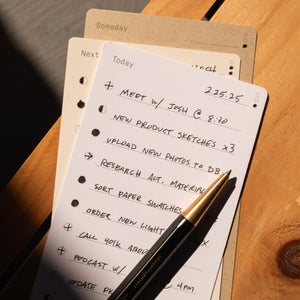 Someday
Next
Today
2.25.25
+ MEET W/ JOSH @ 8:30
NEW PRODUCT SKETCHES x3
UPLOAD NEW PHOTOS TO DB
→ RESEARCH ALT. MATERIAL
SORT PAPER SWATCHES
ORDER NEW LIGHT
+ CALL 401K ABOUT
+ PODCAST W/ 4PM
UPDATE